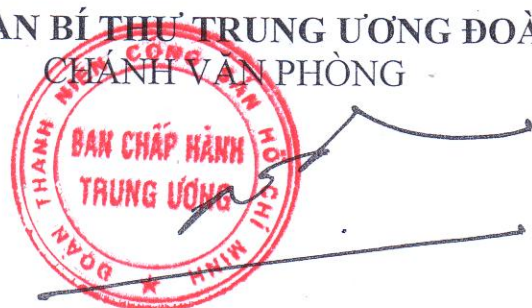 AN BÍ THƯ TRUNG ƯƠNG ĐOÀ
CHÁNH VĂN PHÒNG
ĐOÀN THANH NIÊN CỘNG SẢN HỒ CHÍ MINH
BAN CHẤP HÀNH
TRUNG ƯƠNG